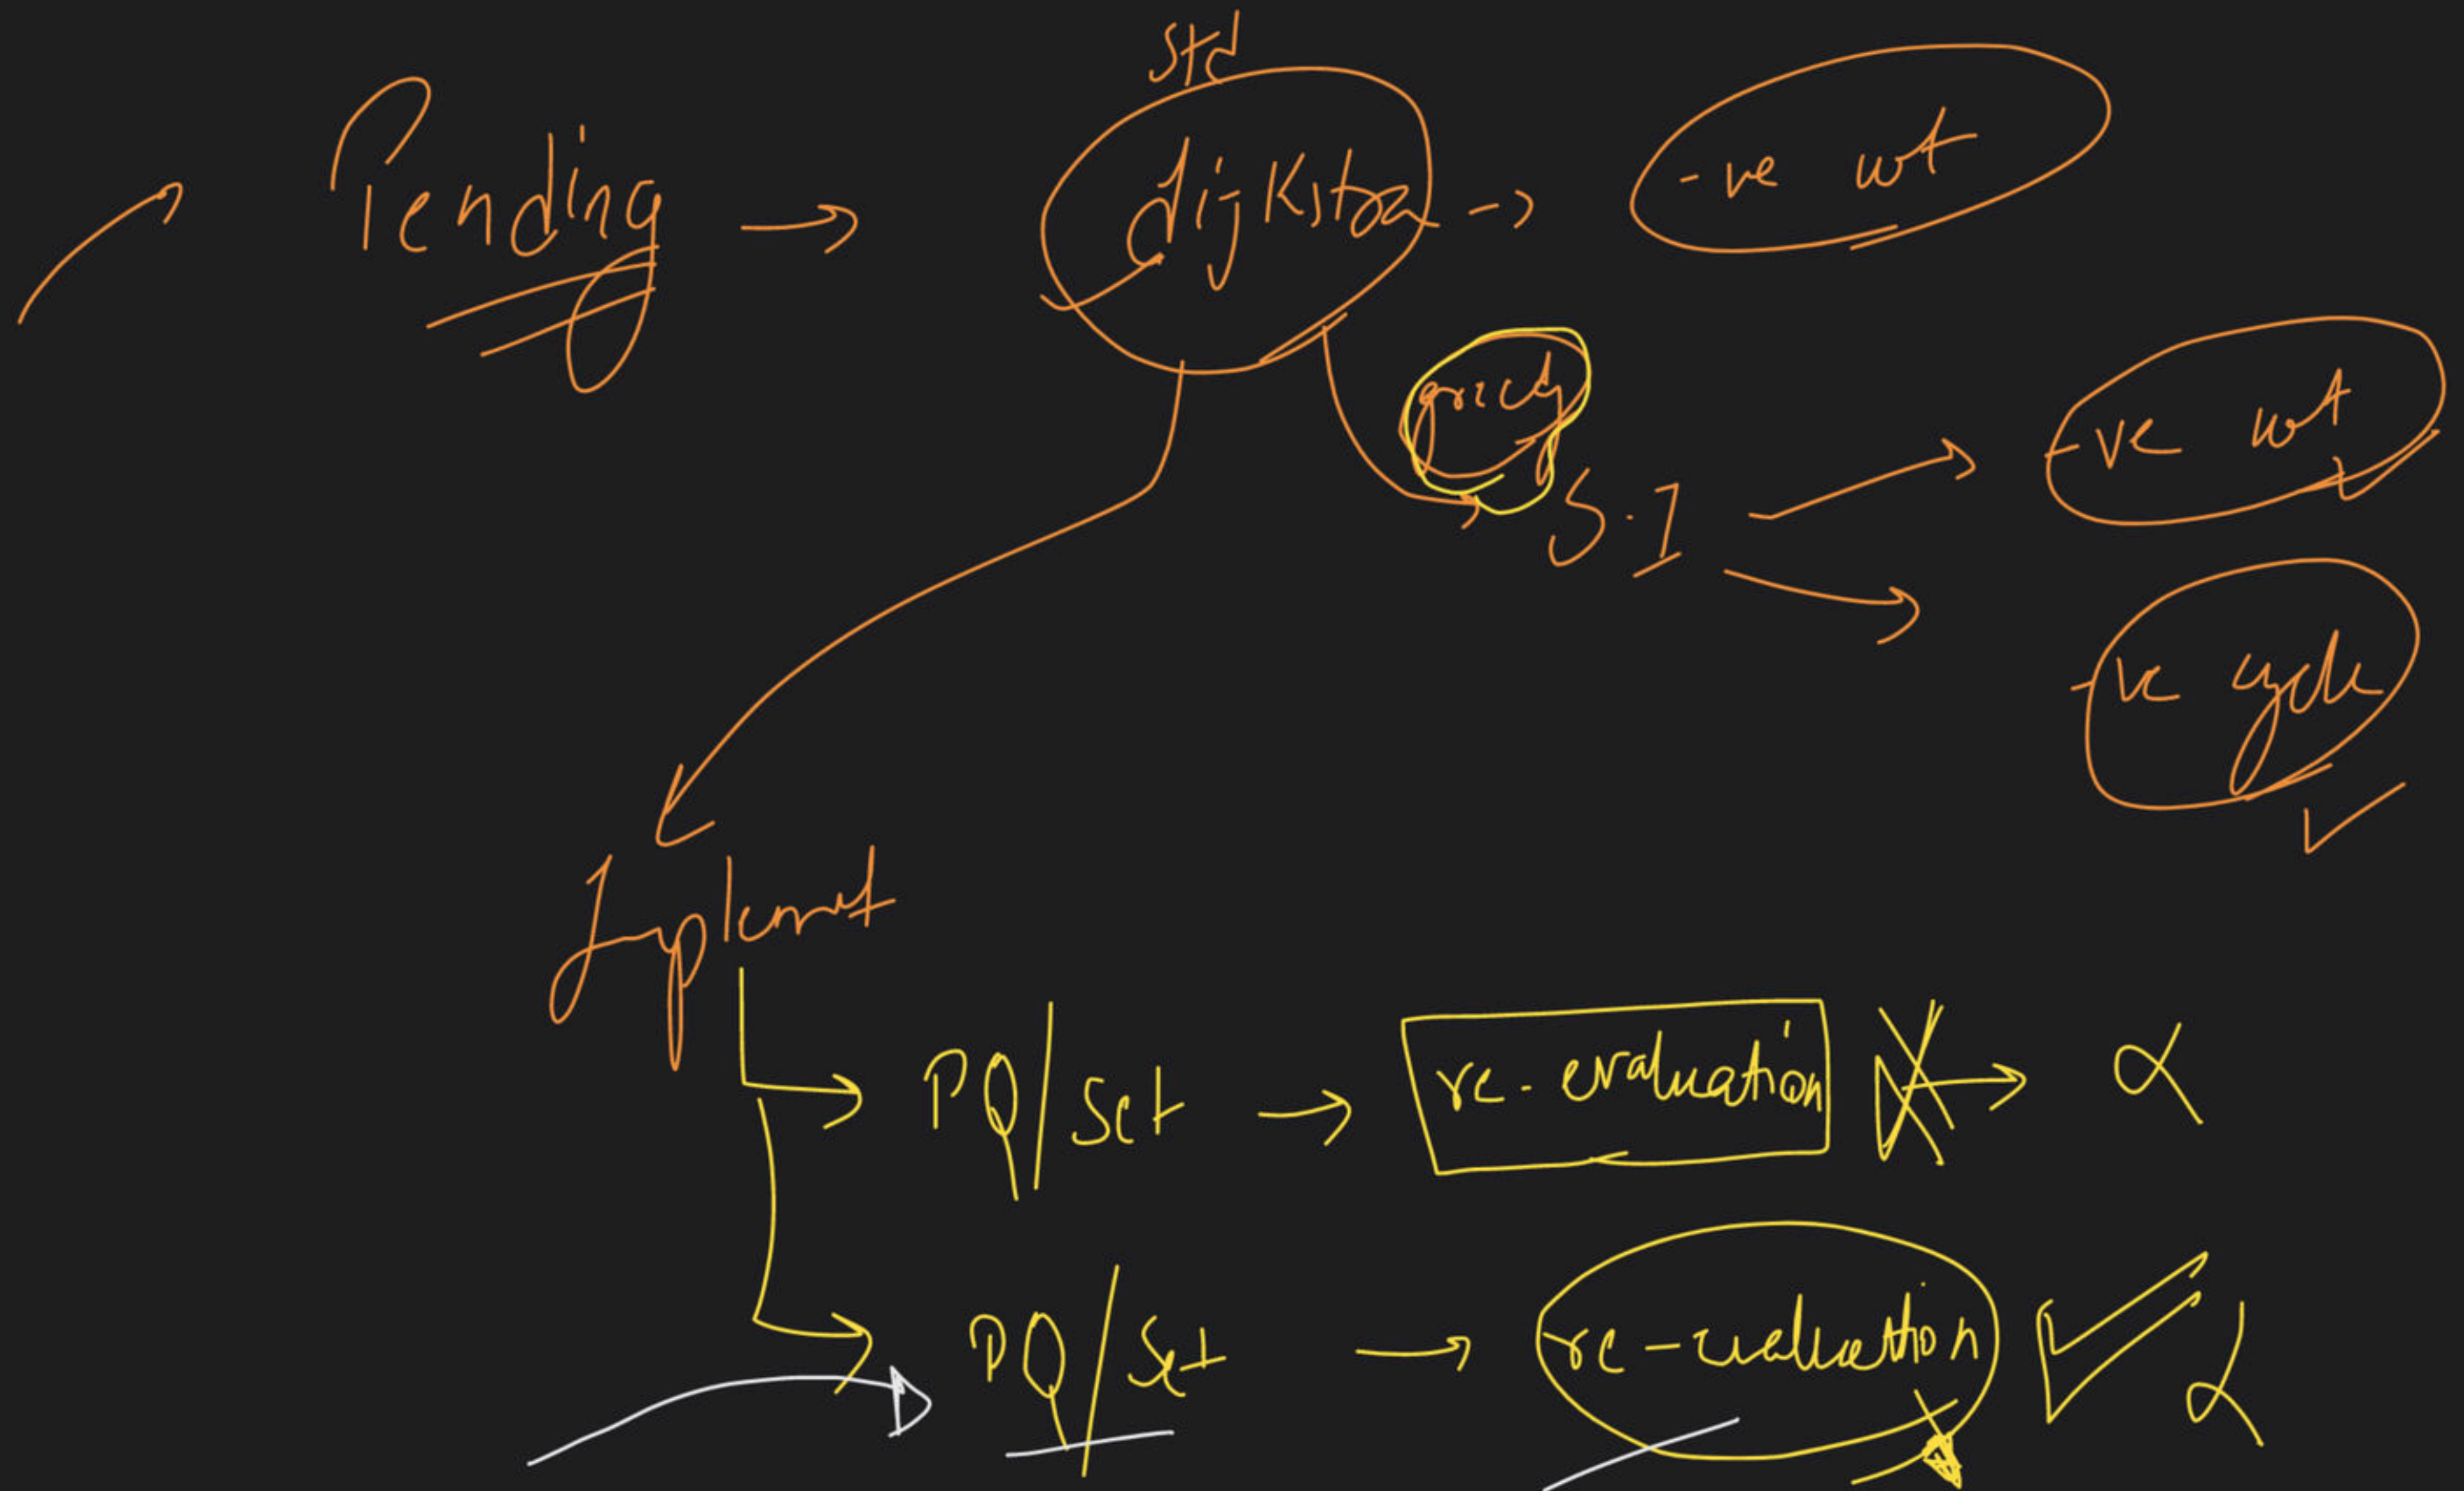 std
Pending → dijkstra → -ve wt
greedy
S.1 → -ve wt
→ -ve cycle
Implement
→ PQ/Set → re-evaluation → α
→ PQ/Set → re-evaluation α